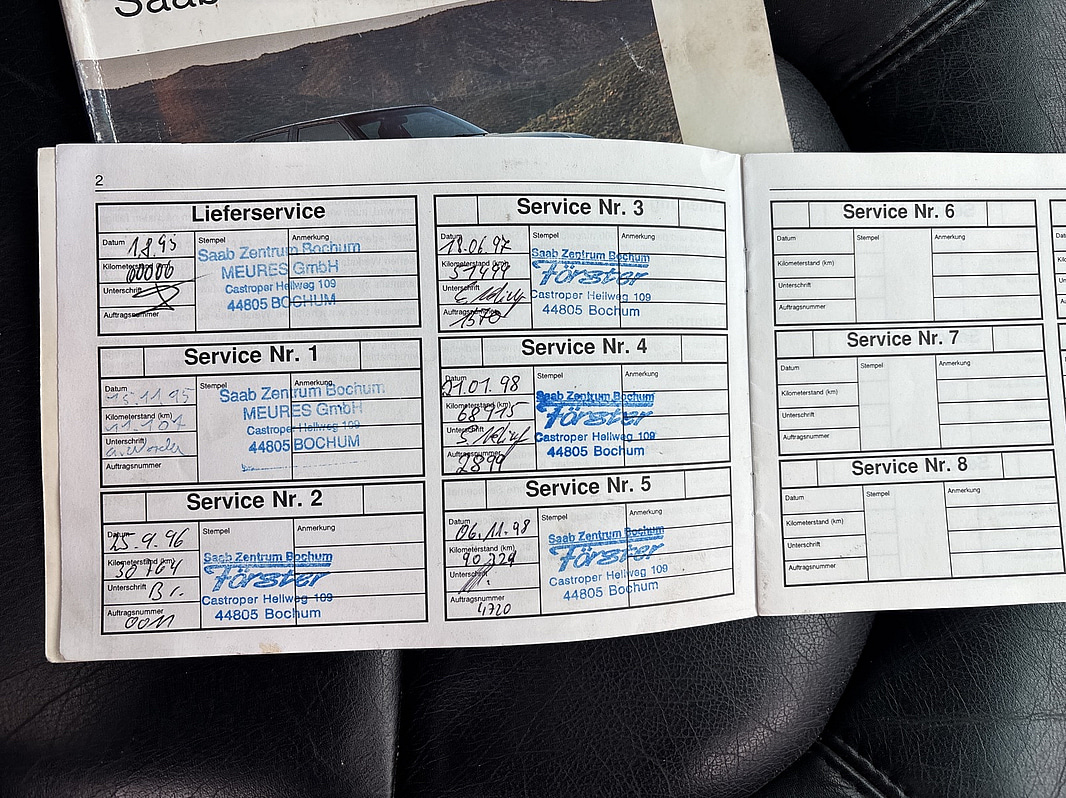 Saab
2
Lieferservice
Datum 1.8.95
Stempel
Anmerkung
Kilometerstand 00006
Unterschrift
Auftragsnummer
Saab Zentrum Bochum
MEURES GmbH
Castroper Hellweg 109
44805 BOCHUM
Service Nr. 1
Datum 15.11.95
Stempel
Anmerkung
Kilometerstand (km)
Unterschrift
Auftragsnummer
Saab Zentrum Bochum
MEURES GmbH
Castroper Hellweg 109
44805 BOCHUM
Service Nr. 2
Datum 25.9.96
Stempel
Anmerkung
Kilometerstand (km)
Unterschrift
Auftragsnummer
0011
Saab Zentrum Bochum
Förster
Castroper Hellweg 109
44805 Bochum
Service Nr. 3
Datum 18.06.97
Stempel
Anmerkung
Kilometerstand (km)
51499
Unterschrift
Auftragsnummer
1570
Saab Zentrum Bochum
Förster
Castroper Hellweg 109
44805 Bochum
Service Nr. 4
Datum
21.01.98
Stempel
Anmerkung
Kilometerstand (km)
68975
Unterschrift
Auftragsnummer
2899
Saab Zentrum Bochum
Förster
Castroper Hellweg 109
44805 Bochum
Service Nr. 5
Datum
06.11.98
Stempel
Anmerkung
Kilometerstand (km)
90.229
Unterschrift
Auftragsnummer
4720
Saab Zentrum Bochum
Förster
Castroper Hellweg 109
44805 Bochum
Service Nr. 6
Datum
Stempel
Anmerkung
Kilometerstand (km)
Unterschrift
Auftragsnummer
Service Nr. 7
Datum
Stempel
Anmerkung
Kilometerstand (km)
Unterschrift
Auftragsnummer
Service Nr. 8
Datum
Stempel
Anmerkung
Kilometerstand (km)
Unterschrift
Auftragsnummer